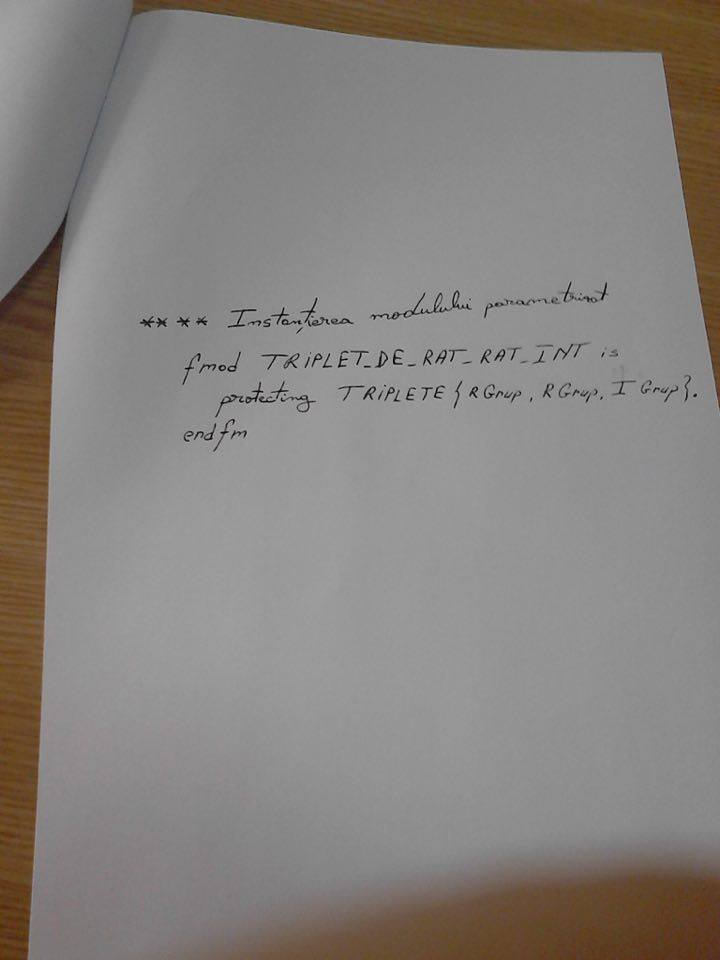 **** Instanțierea modulului parametrizat
fmod TRIPLET_DE_RAT_RAT_INT is
protecting TRIPLETE{RGrup, RGrup, IGrup}.
endfm